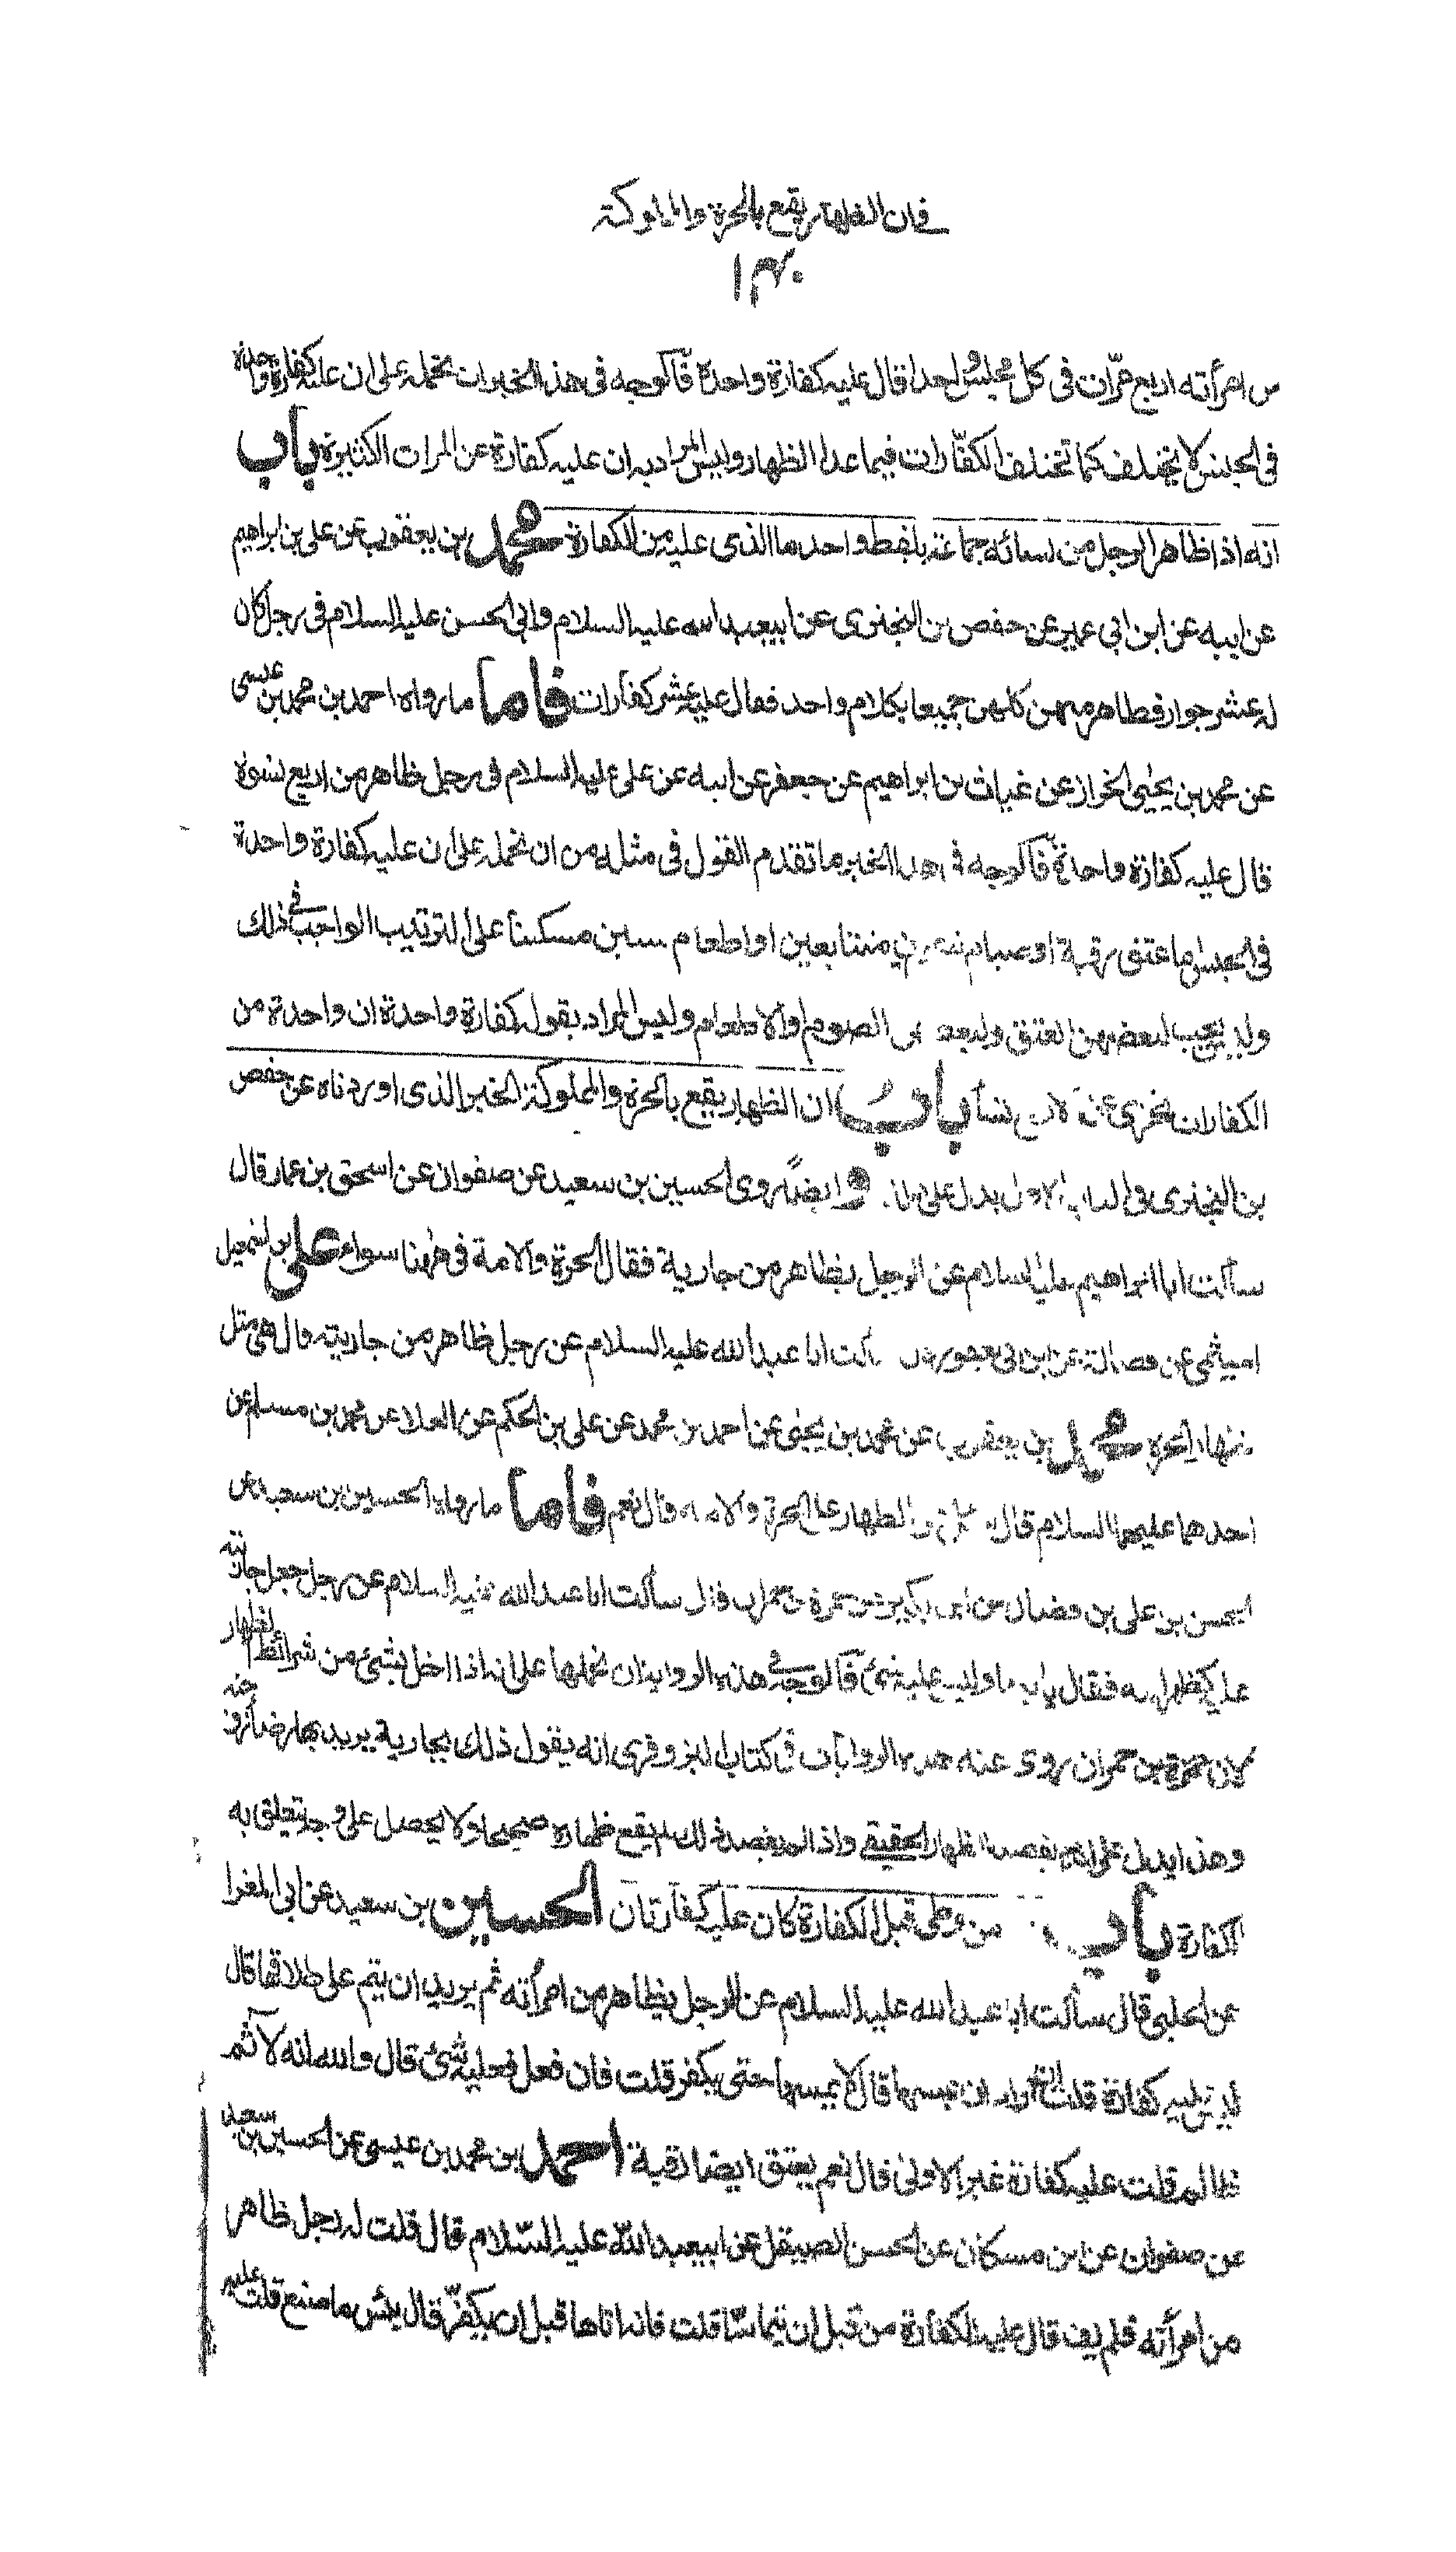 في ان الظهار يقع بالحرة والمملوكة
من امرأته اربع مرّات في كل مجلس واحدا قال عليه كفارة واحدة فالوجه في هذا الخبر ان نحمله على ان عليه كفارة واحدة
في الجنس لا يختلف كما تختلف الكفّارات فيما عدا الظهار وليس المراد به ان عليه كفارة عن المرات الكثيرة باب
انه اذا ظاهر الرجل من نسائه جماعة بلفظ واحد ما الذى عليه من الكفارة محمد بن يعقوب عن على بن ابراهيم
عن ابيه عن ابن ابى عمير عن حفص بن البخترى عن ابيعبد الله عليه السلام وابى الحسن عليه السلام في رجل كان
له عشر جوار فظاهر منهن كلهن جميعا بكلام واحد فقال عليه عشر كفارات فاما ما رواه احمد بن محمد بن عيسى
عن محمد بن يحيى الخزاز عن غياث بن ابراهيم عن جعفر عن ابيه عن على عليه السلام في رجل ظاهر من اربع نسوة
قال عليه كفارة واحدة فالوجه في هذا الخبر ما تقدم القول في مثله من ان نحمله على ان عليه كفارة واحدة
في الجنس اما عتق رقبة او صيام شهرين متتابعين او اطعام ستين مسكينا على الترتيب الواجب في ذلك
وليس يجب لبعضهن العتق ولبعضهن الصوم او الاطعام وليس المراد بقوله كفارة واحدة ان واحدة من
الكفارات تجزى عن الاربع نساء باب ان الظهار يقع بالحرة والمملوكة الخبر الذى اوردناه عن حفص
بن البخترى في الباب الاول يدل على ذلك وايضا روى الحسين بن سعيد عن صفوان عن اسحق بن عمار قال
سألت ابا ابراهيم عليه السلام عن الرجل يظاهر من جارية فقال الحرة والامة في هذا سواء على بن اسمعيل
الميثمى عن فضالة عن ابن ابى يعفور قال سألت ابا عبد الله عليه السلام عن رجل ظاهر من جاريته قال هي مثل
ظهار الحرة محمد بن يعقوب عن محمد بن يحيى عن احمد بن محمد عن على بن الحكم عن العلا عن محمد بن مسلم عن
احدهما عليهما السلام قال الظهار على الحرة والامة قال نعم فاما ما رواه الحسين بن سعيد عن
الحسن بن على بن فضال عن ابن بكير عن حمزة بن حمران قال سألت ابا عبد الله عليه السلام عن رجل جعل جاريته
عليه كظهر امه فقال ياتيها وليس عليه شئ فالوجه في هذه الرواية ان نحملها على انه اذا اخل بشئ من شرائط الظهار
لان حمزة بن حمران روى عنه هذه الرواية في كتاب البزوفرى انه يقول ذلك لجارية يريد بها رضا زوجته
وهذا يدل على انه لم يقصد الظهار الحقيقى واذا لم يقصد ذلك لم يقع ظهاره صحيحا ولا يحصل على وجه يتعلق به
الكفارة باب من وطى قبل الكفارة كان عليه كفارتان الحسين بن سعيد عن ابى المغرا
عن الحلبى قال سألت ابا عبد الله عليه السلام عن الرجل يظاهر من امرأته ثم يريد ان يتم على طلاقها قال
ليس عليه كفارة قلت ان اراد ان يمسها قال لا يمسها حتى يكفر قلت فان فعل فعليه شئ قال والله انه لآثم
ظالم قلت عليه كفارة غير الاولى قال نعم يعتق ايضا رقبة احمد بن محمد بن عيسى عن الحسين بن سعيد
عن صفوان عن ابن مسكان عن الحسن الصيقل عن ابيعبد الله عليه السّلام قال قلت له رجل ظاهر
من امرأته فلم يف قال عليه الكفارة من قبل ان يتماسّا قلت فانه اتاها قبل ان يكفّر قال بئس ما صنع قلت عليه